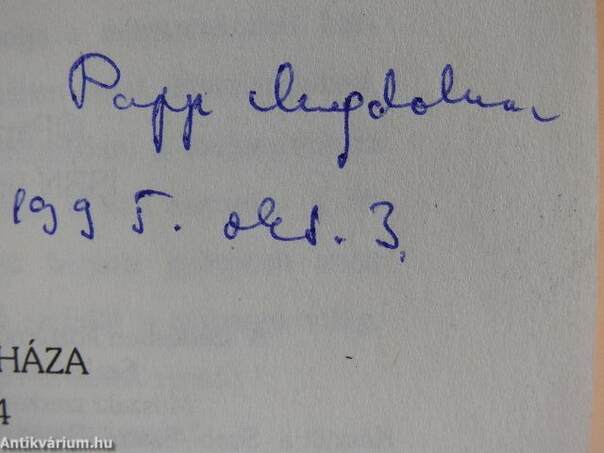 Papp Magdolna
1995. okt. 3.
HÁZA
4
Antikvárium.hu